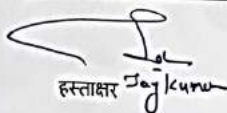 हस्ताक्षर Jay Kumar